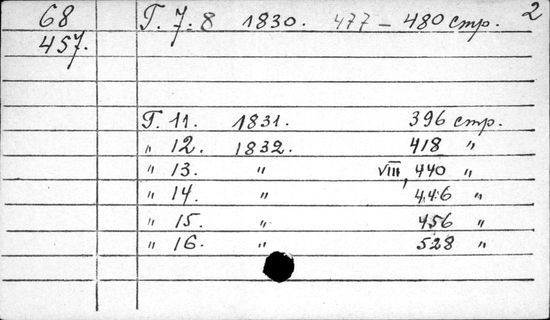 68 Т. 7-8 1830. 477 – 480 стр. 2
457.
Т. 11. 1831. 396 стр.
" 12. 1832. 418 "
" 13. " VIII, 440 "
" 14. " 446 "
" 15. " 456 "
" 16. " 528 "